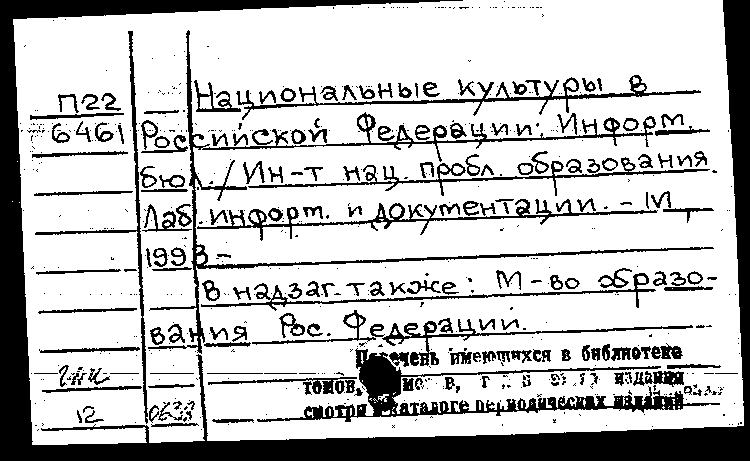 П22 Национальные культуры в
6461 Российской Федерации: Информ.
бюл. / Ин-т нац. пробл. образования.
Лаб. информ. и документации. – М.,
1993 –
В надзаг. также: М-во образо-
вания Рос. Федерации.
Перечень имеющихся в библиотеке
томов, издания
смотри в каталоге периодических изданий
12 0633